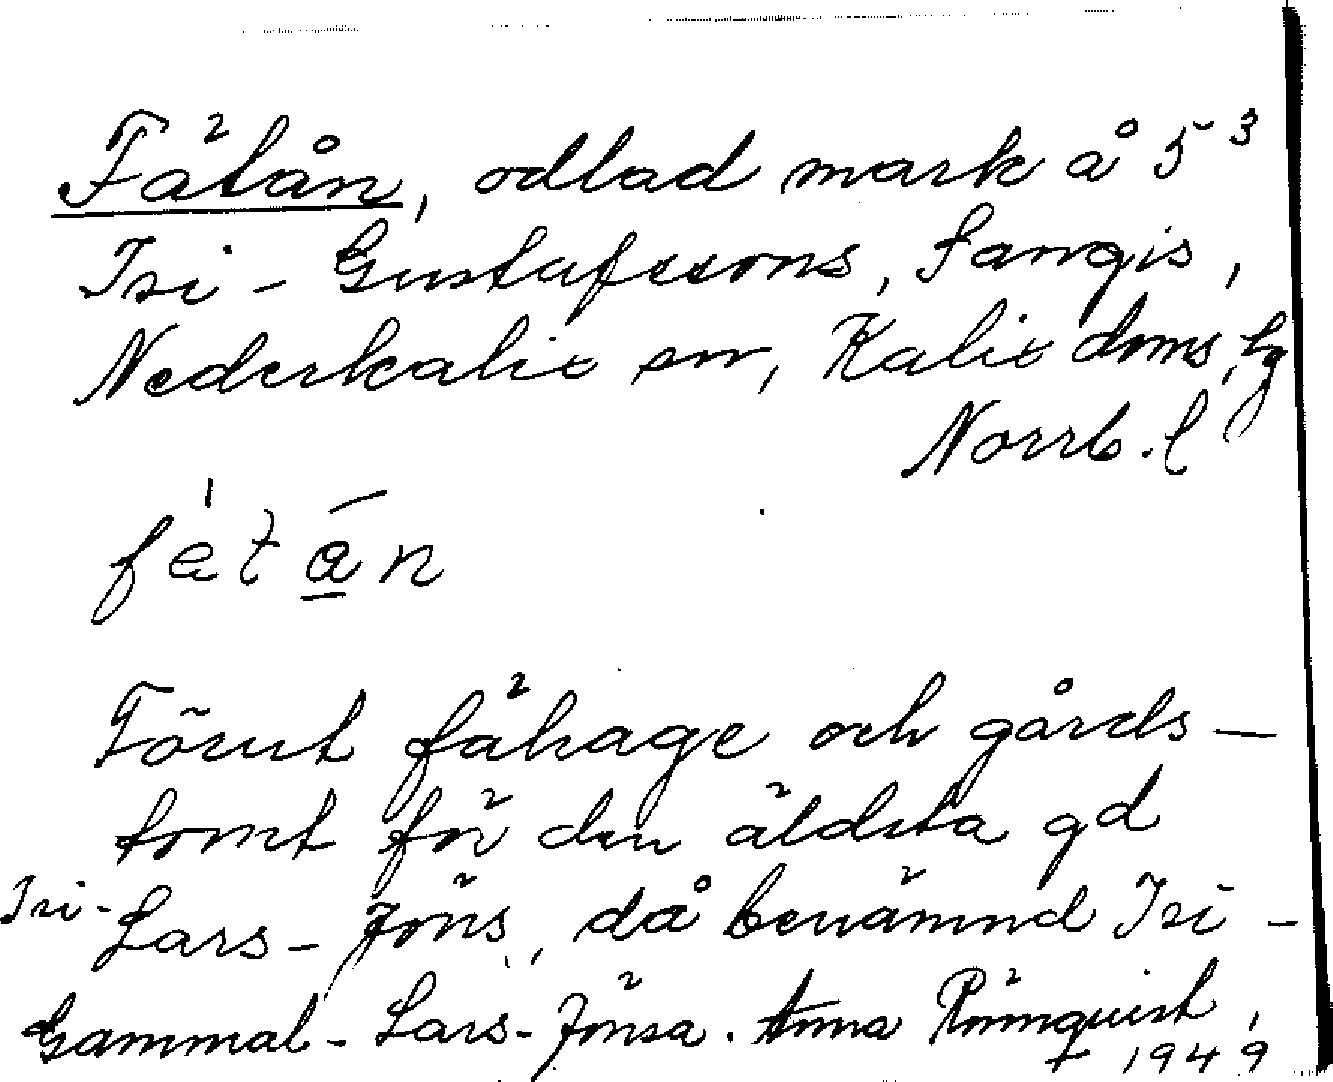 Fätån, odlad mark å 5³
Isi - Gustafssons, Sangis,
Nederkalix sn, Kalix doms. lg
Norrb. l
fätån
Förut fähage och gårds-
tomt för den äldsta gd
Isi- Lars-Jöns, då benämnd Isi-
Gammal-Lars-Jönsa. Anna Rönnquist,
+ 1949